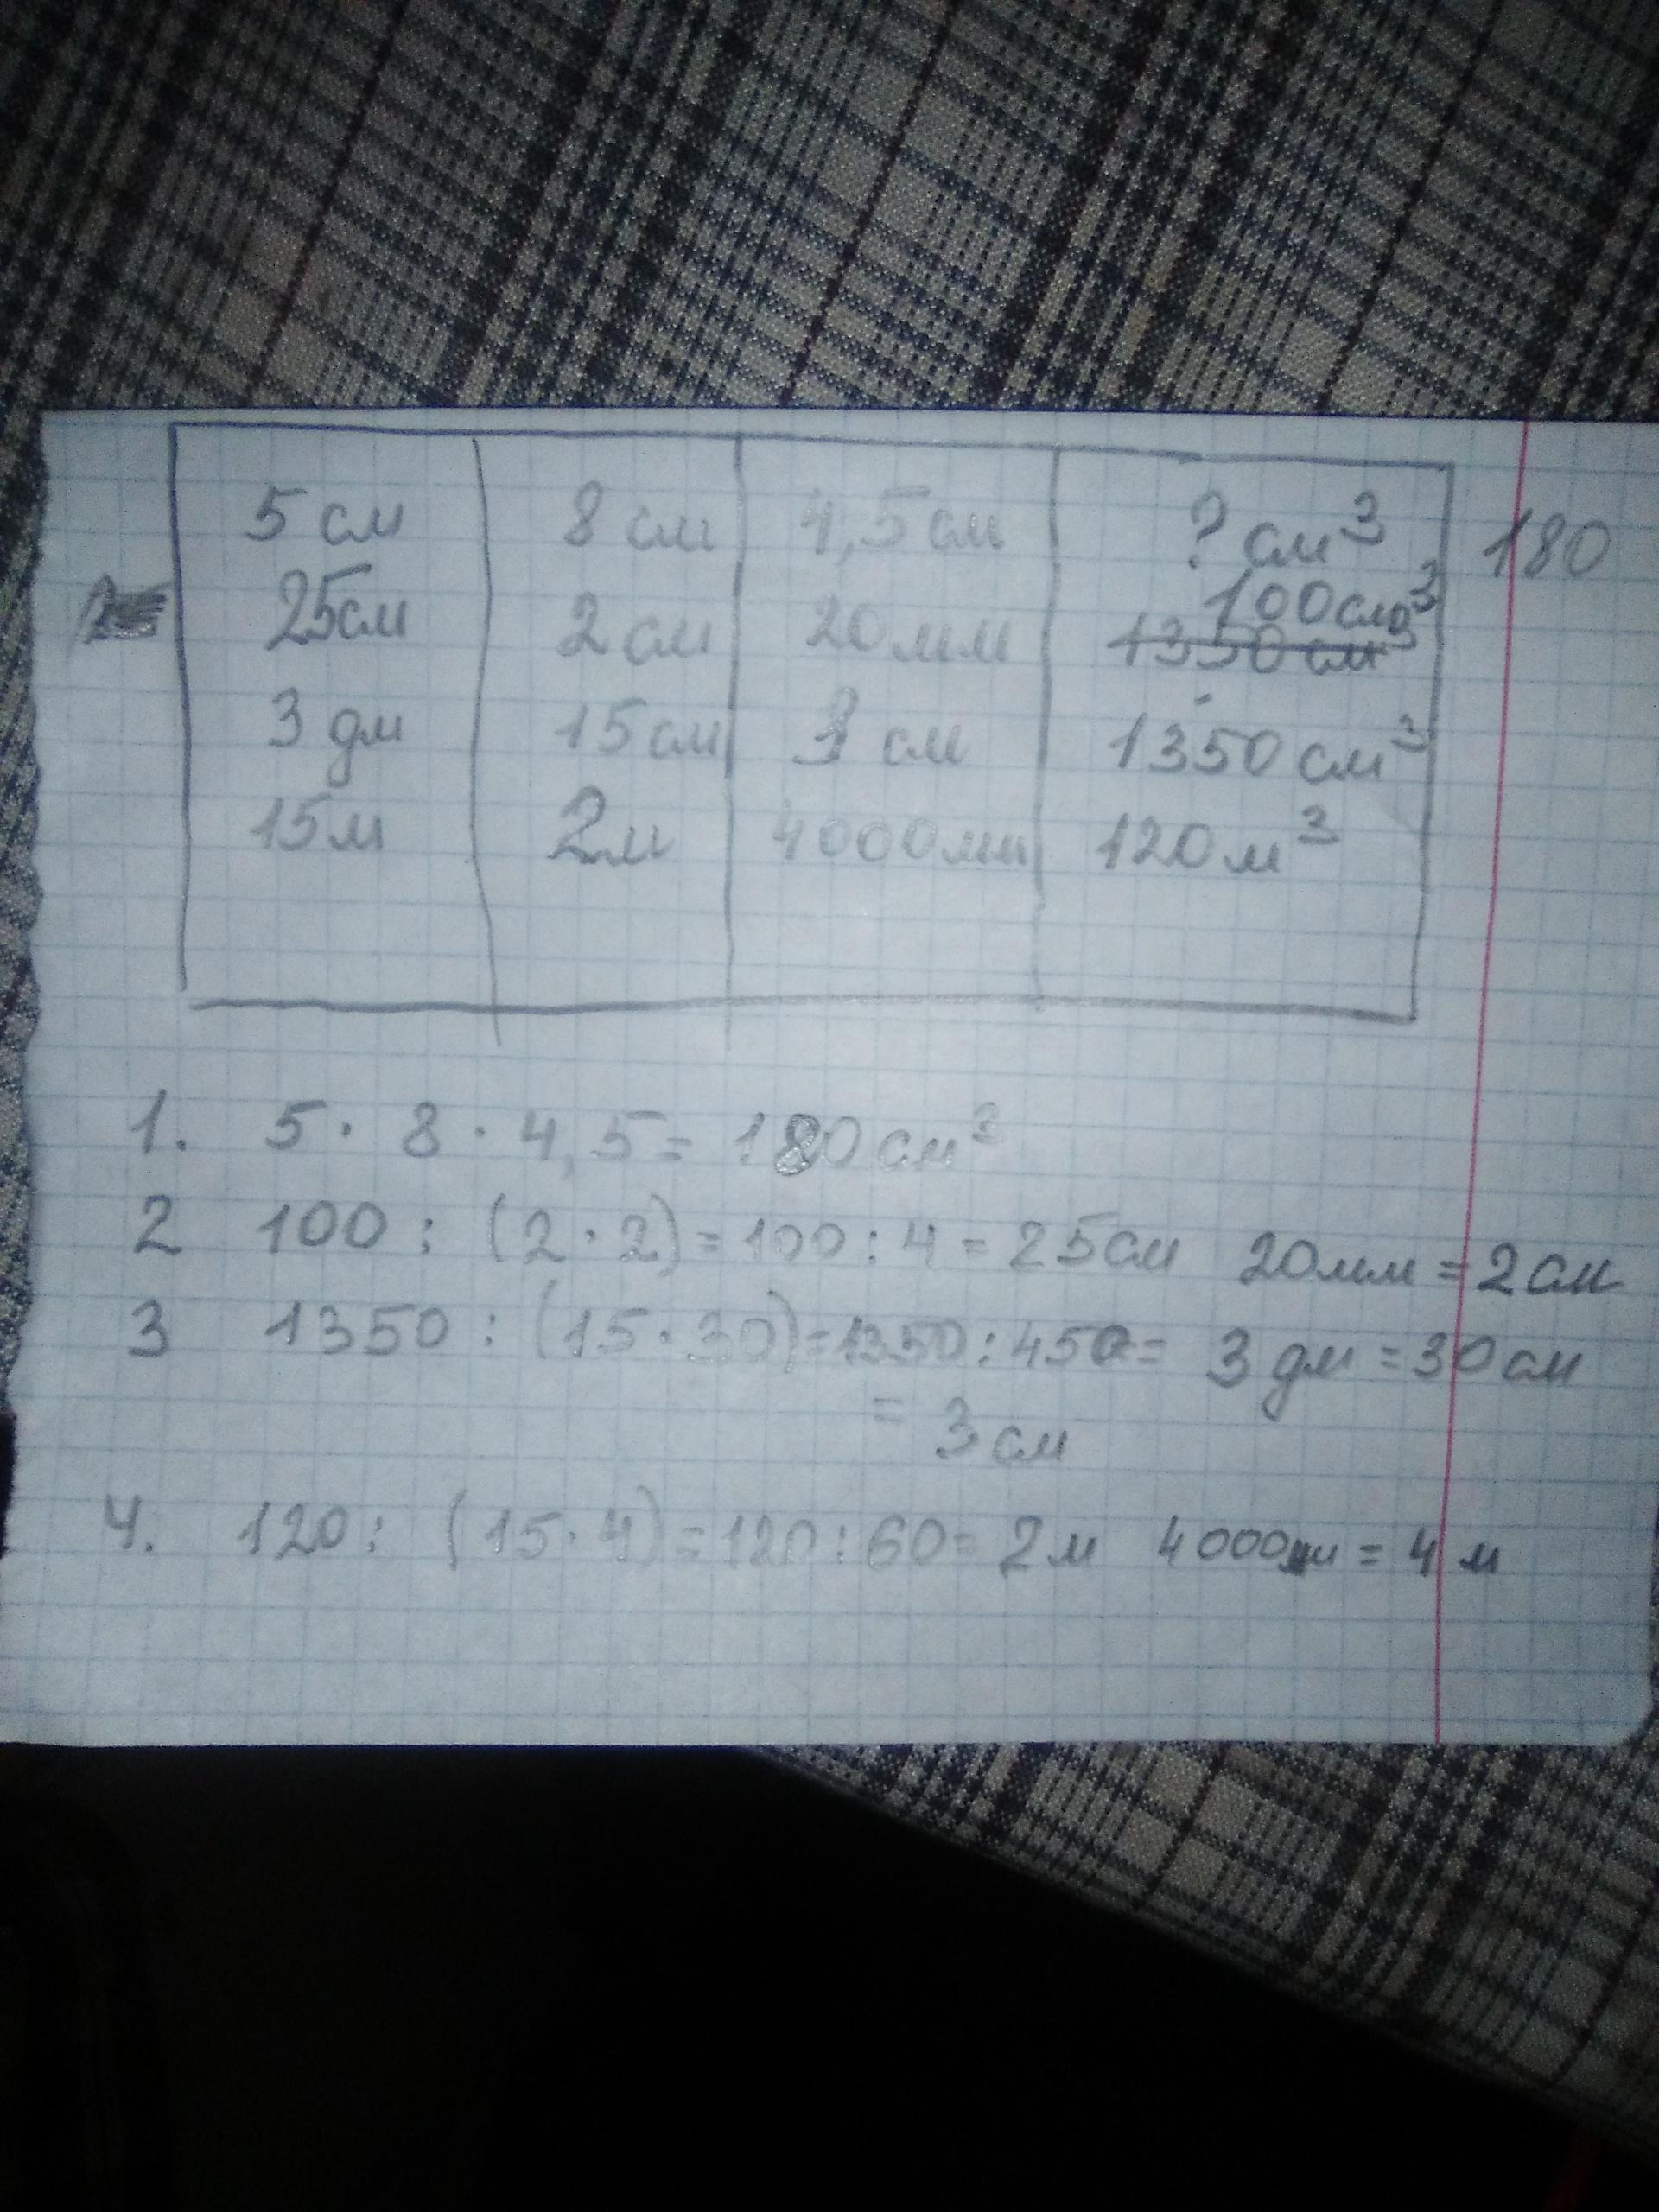 5 см 8 см 4,5 см ? см³ 180
100 см³
25 см 2 см 20 мм 1350 см³
3 дм 15 см 3 см 1350 см³
15 м 2 м 4000 мм 120 м³
1. 5 · 8 · 4,5 = 180 см³
2 100 : (2 · 2) = 100 : 4 = 25 см 20 мм = 2 см
3 1350 : (15 · 30) = 1350 : 450 = 3 дм = 30 см
= 3 см
4. 120 : (15 · 4) = 120 : 60 = 2 м 4000 мм = 4 м